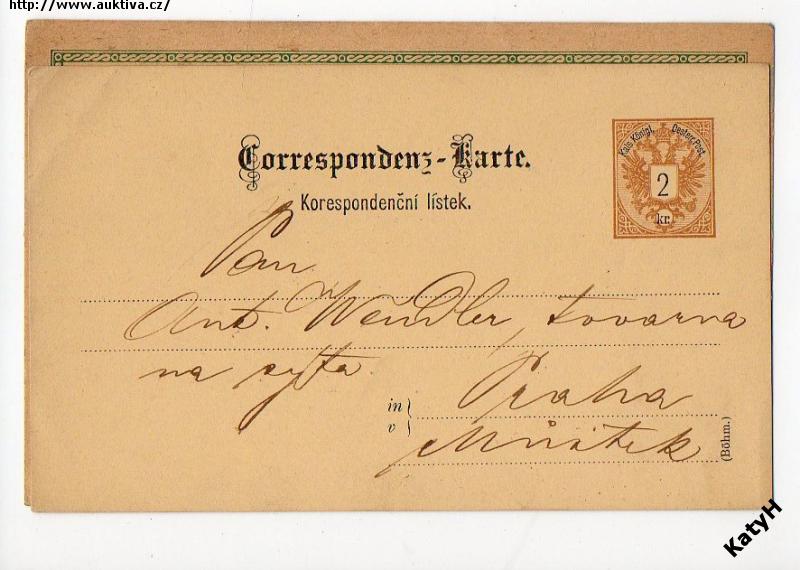 http://www.auktiva.cz/
Correspondenz-Karte.
Korespondenční lístek.
Kais. Königl. Oesterr. Post
2
kr.
Pan
Ant. Wendler, tovarna
na sýta
in
v
Praha
Můstek
(Böhm.)
KatyH